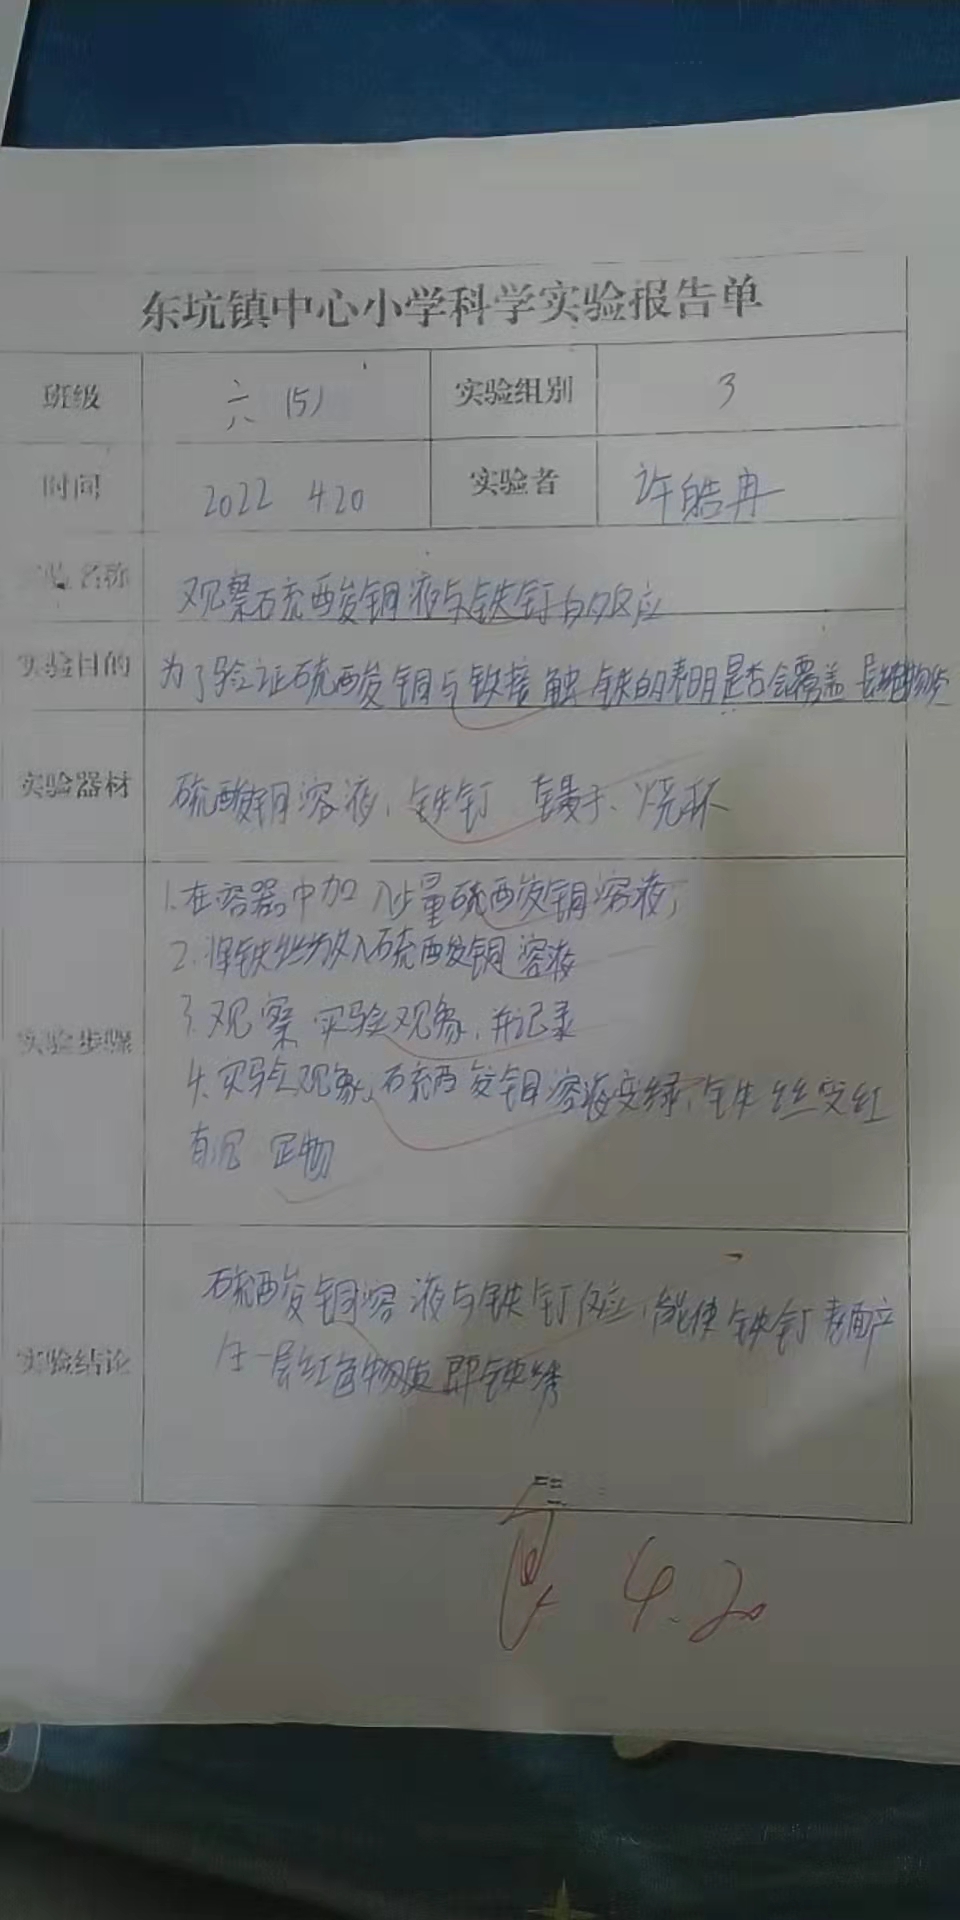 东坑镇中心小学科学实验报告单
班级 六(5) 实验组别 3
时间 2022 4.20 实验者 许皓冉
实验名称 观察硫酸铜液与铁钉的反应
实验目的 为了验证硫酸铜与铁接触铁的表明是否会覆盖层红色物质
实验器材 硫酸铜溶液,铁钉 镊子、烧杯
1.在容器中加入少量硫酸铜溶液;
2.将铁丝放入硫酸铜溶液
3.观察实验现象,并记录
实验步骤
4.实验现象,硫酸铜溶液变绿,铁丝变红
有沉淀物
硫酸铜溶液与铁钉反应,能使铁钉表面产
实验结论 生一层红色物质即铁锈
4.20